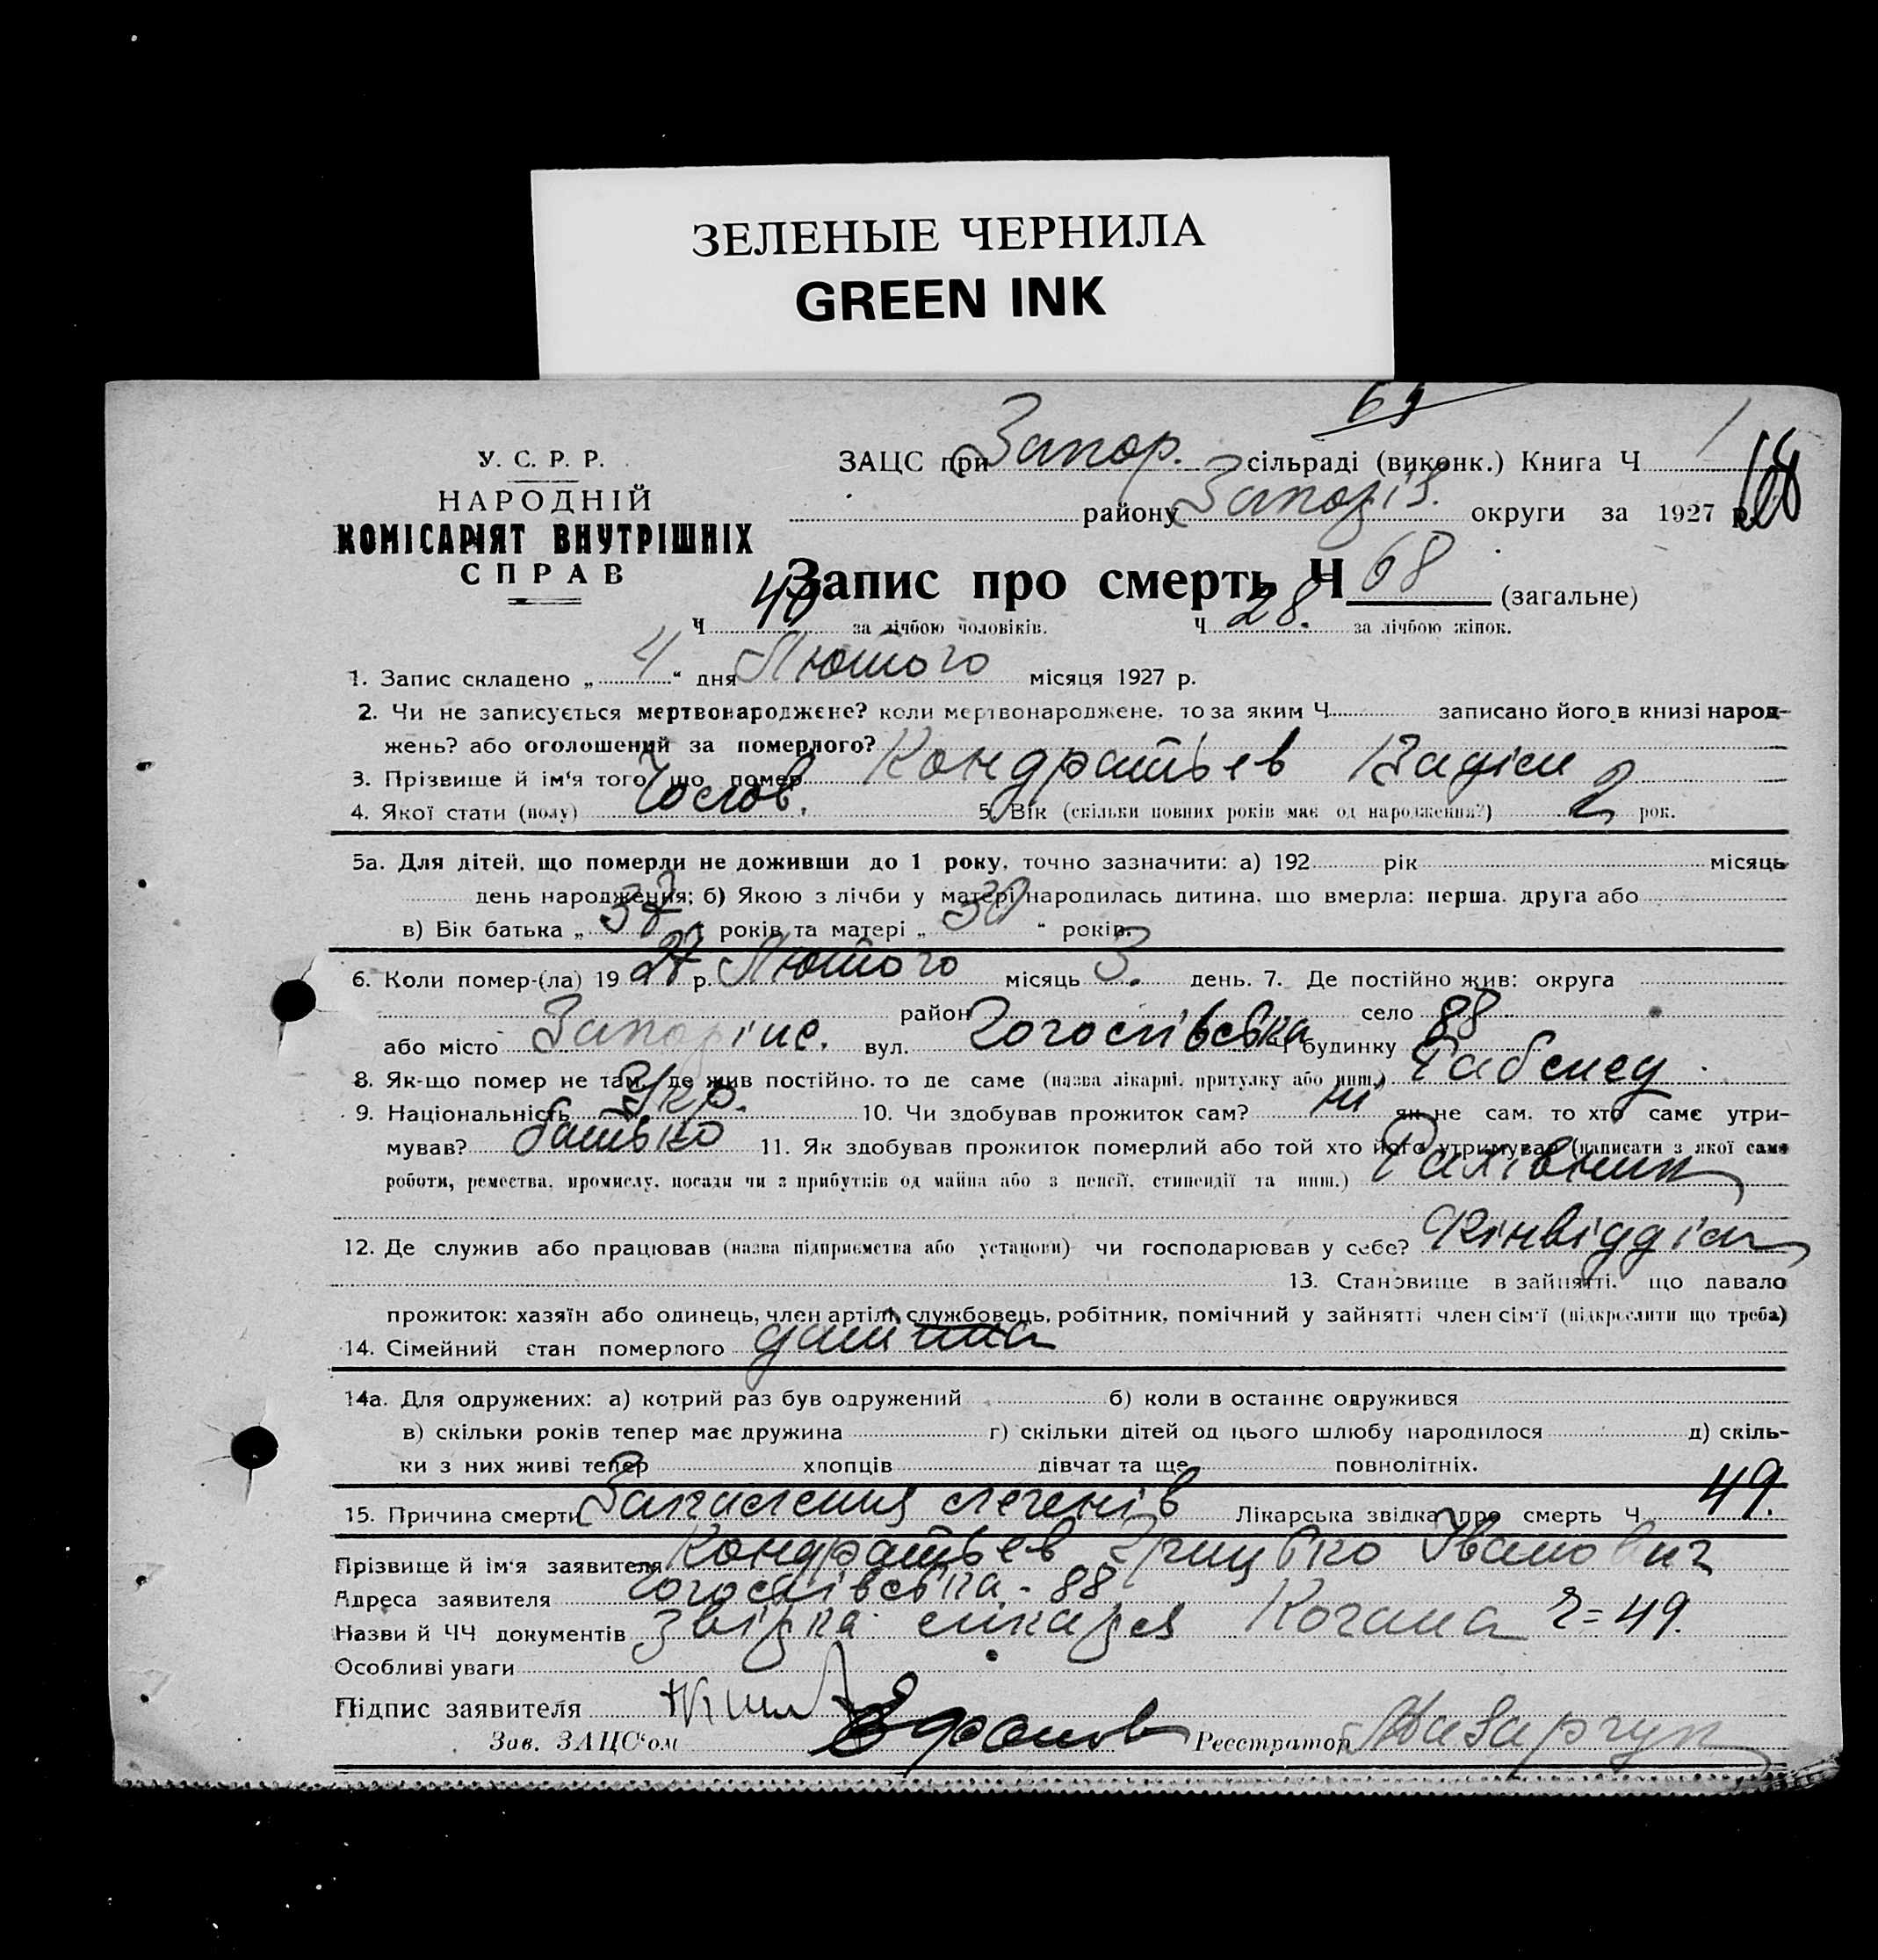 ЗЕЛЕНЫЕ ЧЕРНИЛА
GREEN INK
69
У. С. Р. Р.
НАРОДНІЙ
КОМІСАРІЯТ ВНУТРІШНІХ
СПРАВ
ЗАЦС при Запор. сільраді (виконк.) Книга Ч 1
68
району Запоріз. округи за 1927 р.
Запис про смерть Ч 68 (загальне)
Ч 40 за лічбою чоловіків. Ч 28. за лічбою жінок.
1. Запис складено „ 4 “ дня Лютого місяця 1927 р.
2. Чи не записується мертвонароджене? коли мертвонароджене, то за яким Ч записано його в книзі народ-
жень? або оголошений за померлого?
3. Прізвище й ім‘я того що помер Кондратьев Вадім
4. Якої стати (полу) Чолов. 5. Вік (скільки повних років має од народження?) 2 рок.
5а. Для дітей, що померли не доживши до 1 року, точно зазначити: а) 192 рік місяць
день народження; б) Якою з лічби у матері народилась дитина, що вмерла: перша, друга або
в) Вік батька „ 37 “ років та матері „ 30 “ років.
6. Коли помер-(ла) 19 27 р. Лютого місяць 3. день. 7. Де постійно жив: округа
район село
або місто Запоріже. вул. Гоголівська Ч будинку 88
8. Як-що помер не там, де жив постійно, то де саме (назва лікарні, притулку або инш.)
9. Національність Укр. 10. Чи здобував прожиток сам? ні як не сам, то хто саме утри-
мував? батько 11. Як здобував прожиток померлий або той хто його утримував (написати з якої саме
роботи, ремества, промислу, посади чи з прибутків од майна або з пенсії, стипендії та инш.) Рахівник
12. Де служив або працював (назва підприємства або установи) чи господарював у себе? Фінвідділ
13. Становище в зайнятті, що давало
прожиток: хазяїн або одинець, член артілі, службовець, робітник, помічний у зайнятті член сім‘ї (підкреслити що треба)
14. Сімейний стан померлого дитина
14а. Для одружених: а) котрий раз був одружений б) коли в останнє одружився
в) скільки років тепер має дружина г) скільки дітей од цього шлюбу народилося д) скіль-
ки з них живі тепер хлопців дівчат та ще повнолітніх.
15. Причина смерти Запалення легенів Лікарська звідка про смерть Ч 49.
Прізвище й ім‘я заявителя Кондратьев Грицько Іванович
Адреса заявителя Гоголівська - 88
Назви й ЧЧ документів звідка лікаря Когана Ч=49.
Особливі уваги
Підпис заявителя
Зав. ЗАЦС‘ом Реєстратор Назарчук